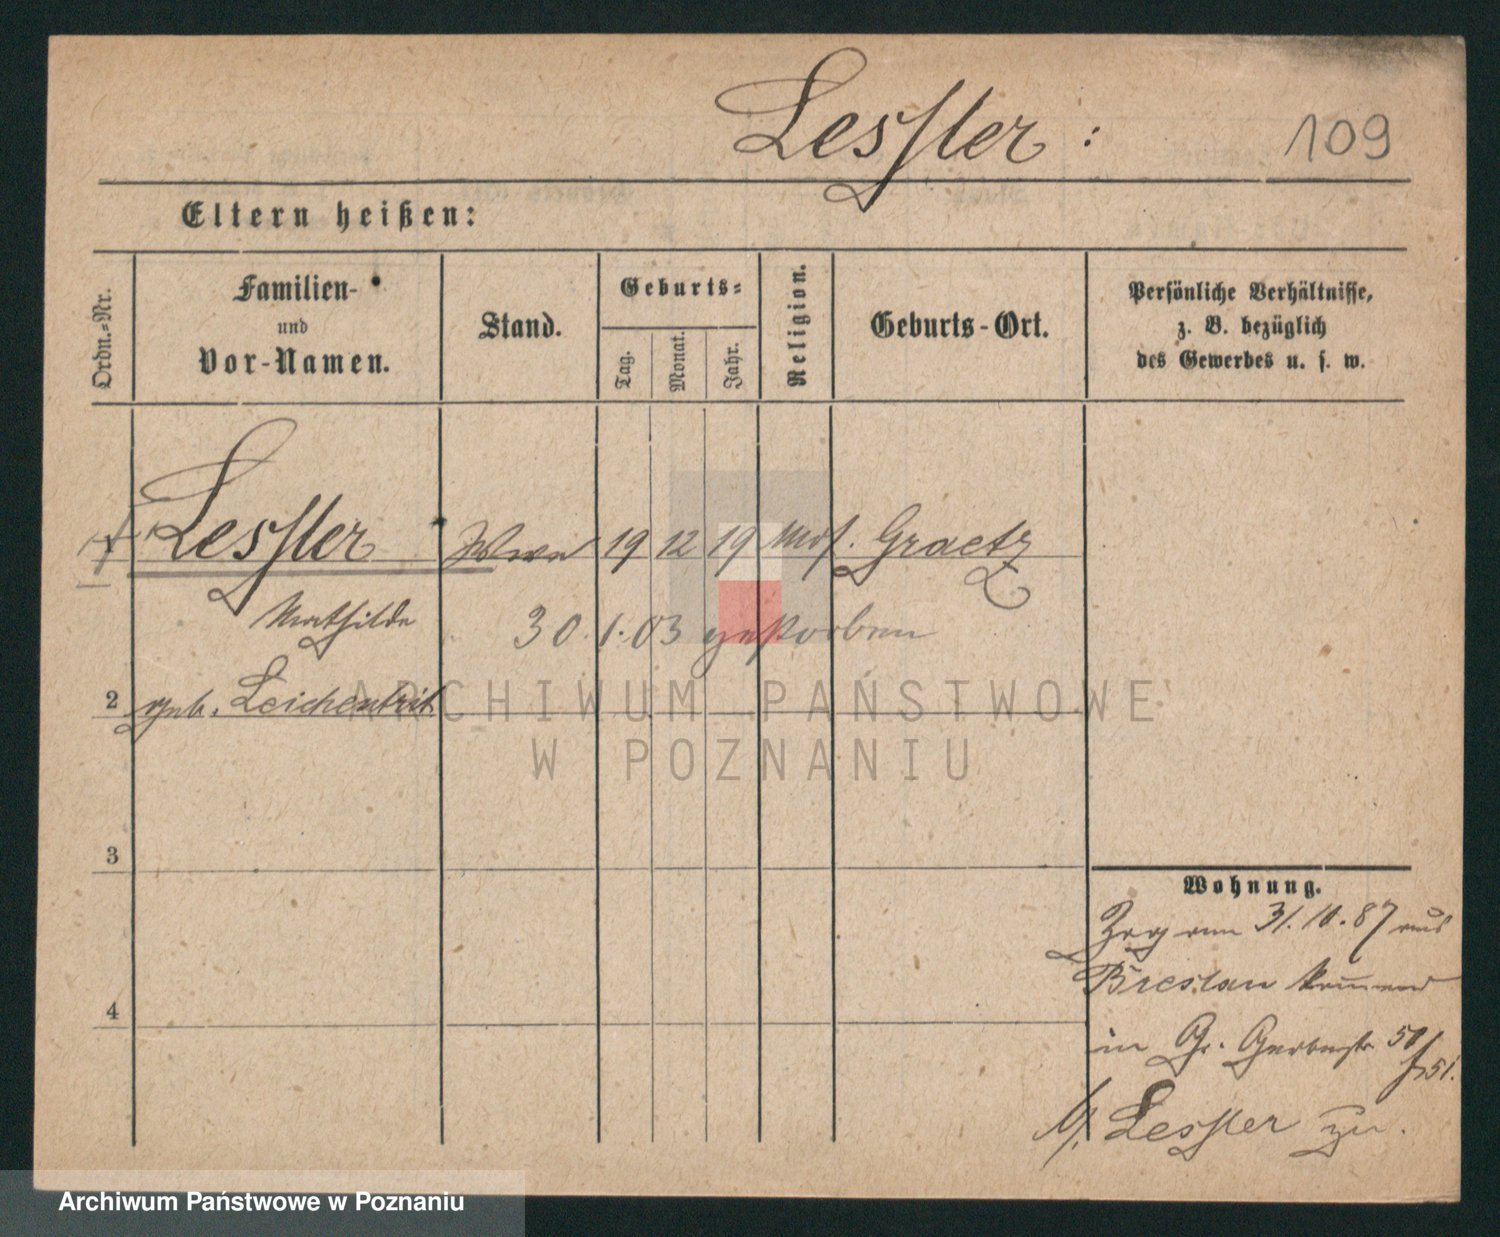 Lessler :
109
Eltern heißen:
Ordn.-Nr.
Familien-
und
Vor-Namen.
Stand.
Geburts-
Tag.
Monat.
Jahr.
Religion.
Geburts-Ort.
Persönliche Verhältnisse,
z. B. bezüglich
des Gewerbes u. s. w.
1 Lessler Wwe 19 12 19 mos. Graetz
Mathilde
30. 1. 03 gestorben
2 geb. Leichentrit
ARCHIWUM PAŃSTWOWE
W POZNANIU
3
Wohnung.
Zog am 31.10.87 aus
Breslau kommend
4
in Gr. Gerberstr 50/51.
Lessler zu.
Archiwum Państwowe w Poznaniu